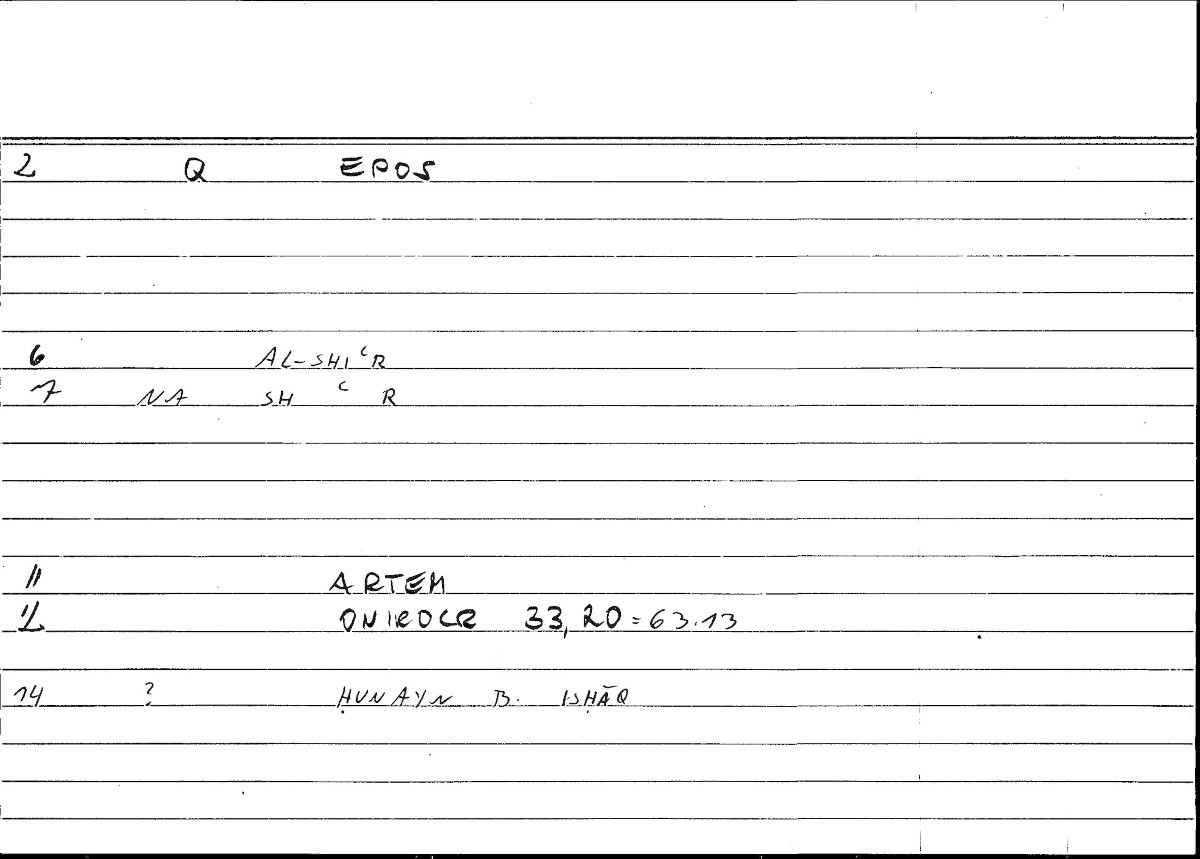 2 Q EPOS
6 AL-SHIʿR
7 NA SH ʿ R
11 ARTEM
12 ONIROCR 33,20=63.13
14 ? ḤUNAYN B. ISḤĀQ